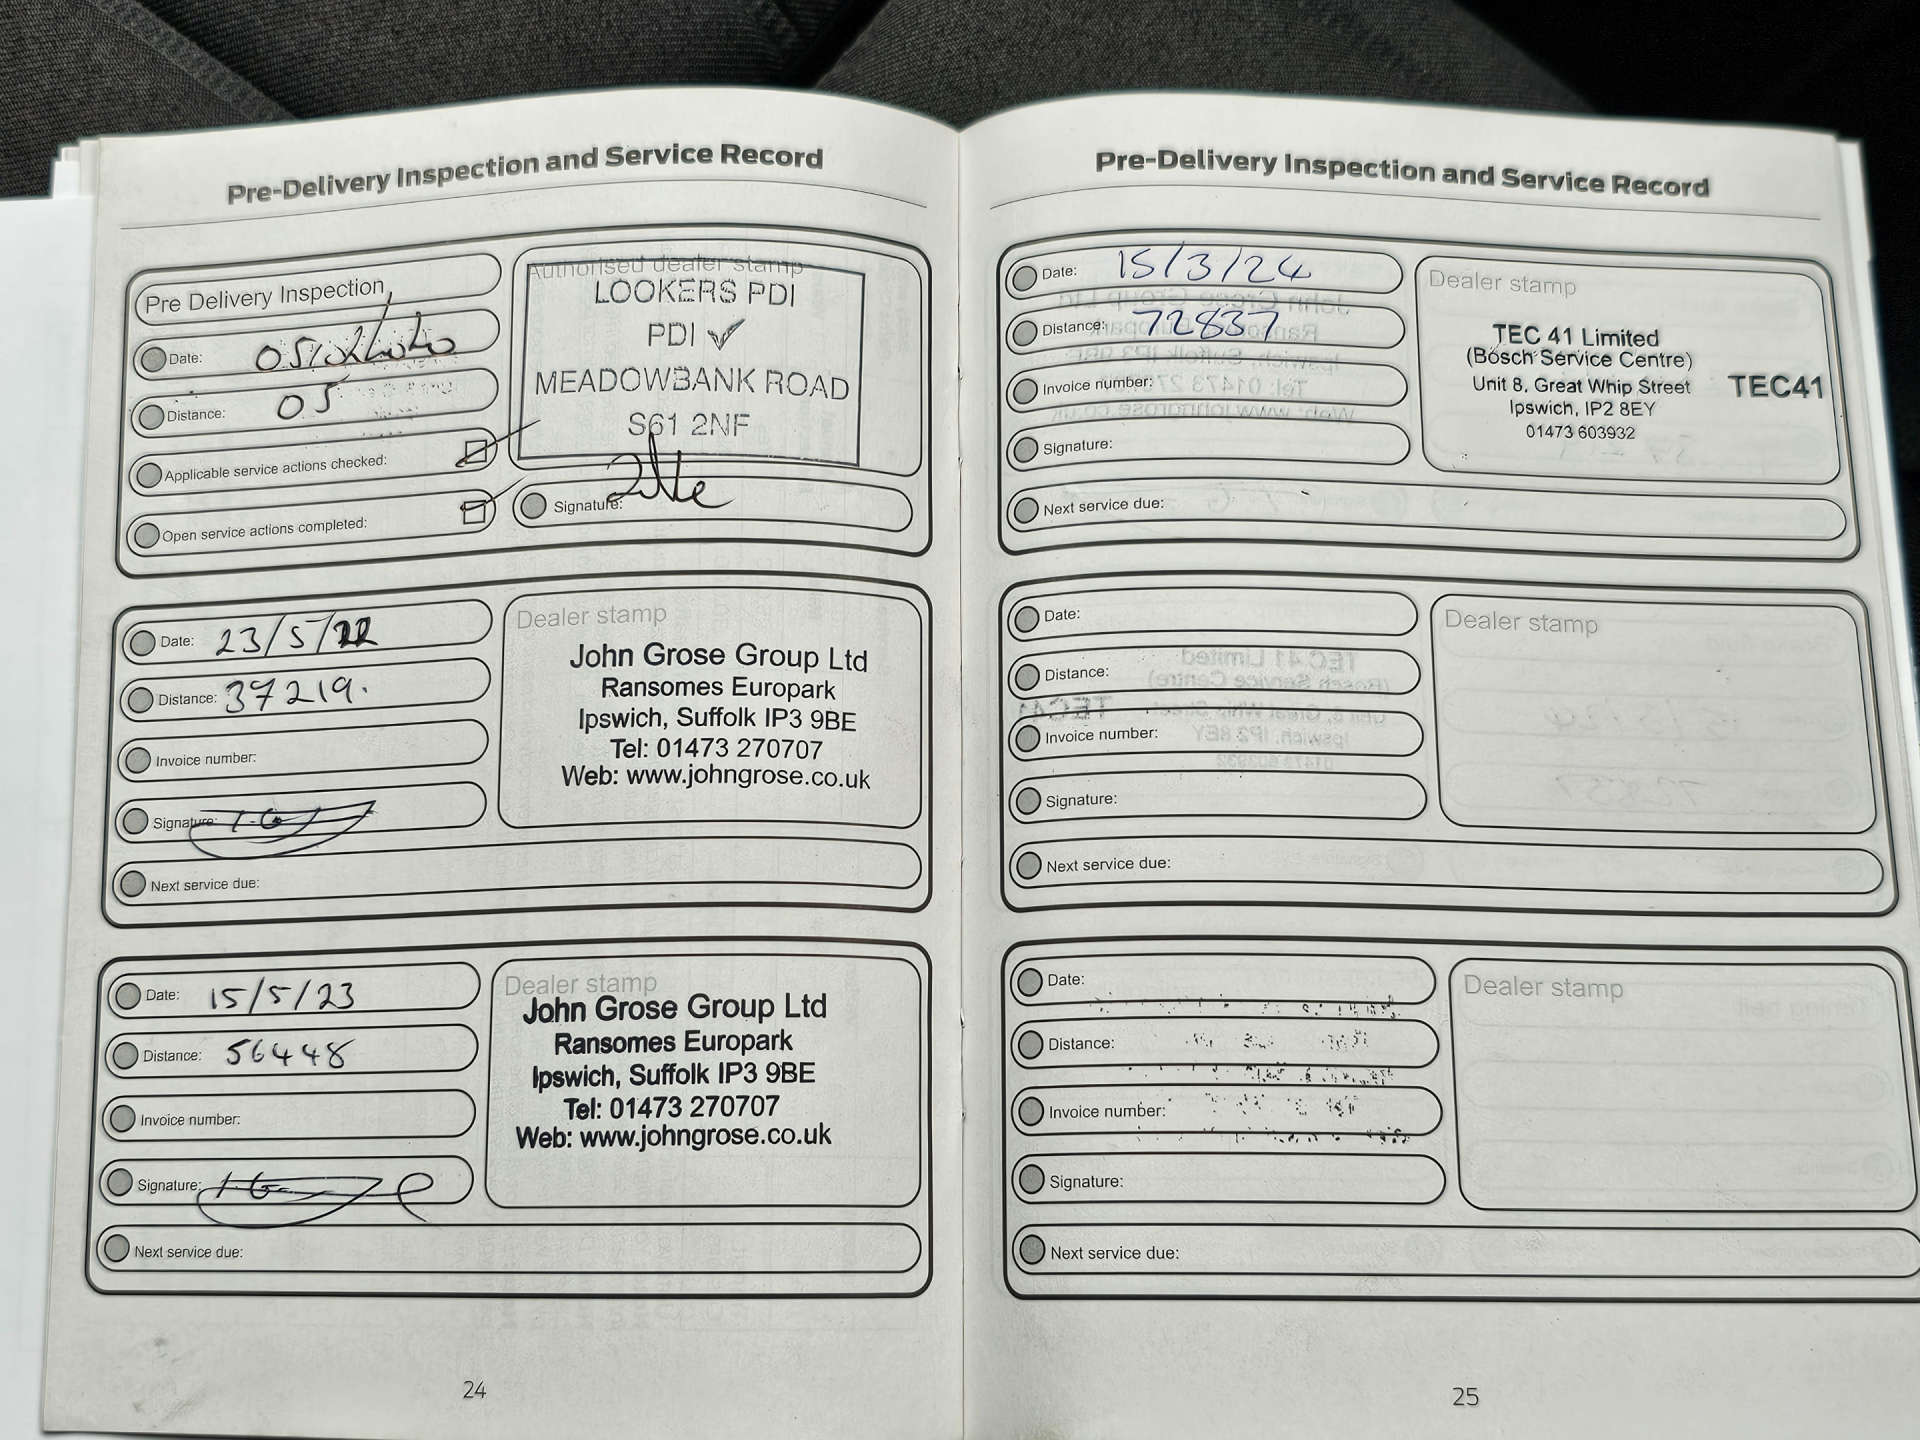 Pre-Delivery Inspection and Service Record
Pre Delivery Inspection
Date:
Distance: 05
Applicable service actions checked:
Open service actions completed:
Authorised dealer stamp
LOOKERS PDI
PDI ✓
MEADOWBANK ROAD
S61 2NF
Signature:
Date: 23/5/22
Distance: 37219.
Invoice number:
Signature:
Next service due:
Dealer stamp
John Grose Group Ltd
Ransomes Europark
Ipswich, Suffolk IP3 9BE
Tel: 01473 270707
Web: www.johngrose.co.uk
Date: 15/5/23
Distance: 56448
Invoice number:
Signature:
Next service due:
Dealer stamp
John Grose Group Ltd
Ransomes Europark
Ipswich, Suffolk IP3 9BE
Tel: 01473 270707
Web: www.johngrose.co.uk
24
Pre-Delivery Inspection and Service Record
Date: 15/3/24
Distance: 72837
Invoice number:
Signature:
Next service due:
Dealer stamp
TEC 41 Limited
(Bosch Service Centre)
Unit 8, Great Whip Street
Ipswich, IP2 8EY
01473 603932
TEC41
Date:
Distance:
Invoice number:
Signature:
Next service due:
Dealer stamp
Date:
Distance:
Invoice number:
Signature:
Next service due:
Dealer stamp
25